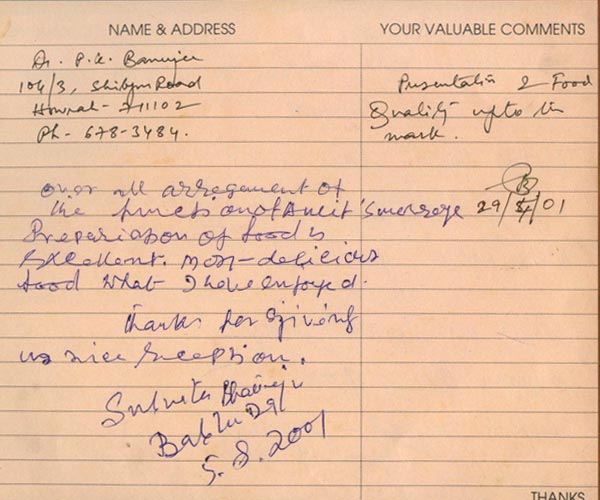 NAME & ADDRESS
YOUR VALUABLE COMMENTS
Dr. P. K. Banerjee
104/3, Shibpur Road
Howrah - 711102
Ph - 678-3484.
Presentation & Food
Quality upto the
mark.
29/4/01
over all arregement of
the function of Amit's marrage
Prepariation of food is
Excellent. most-delicious
food what I have enjoyed.
Thanks for giving
us nice reception.
5.8.2001
THANKS